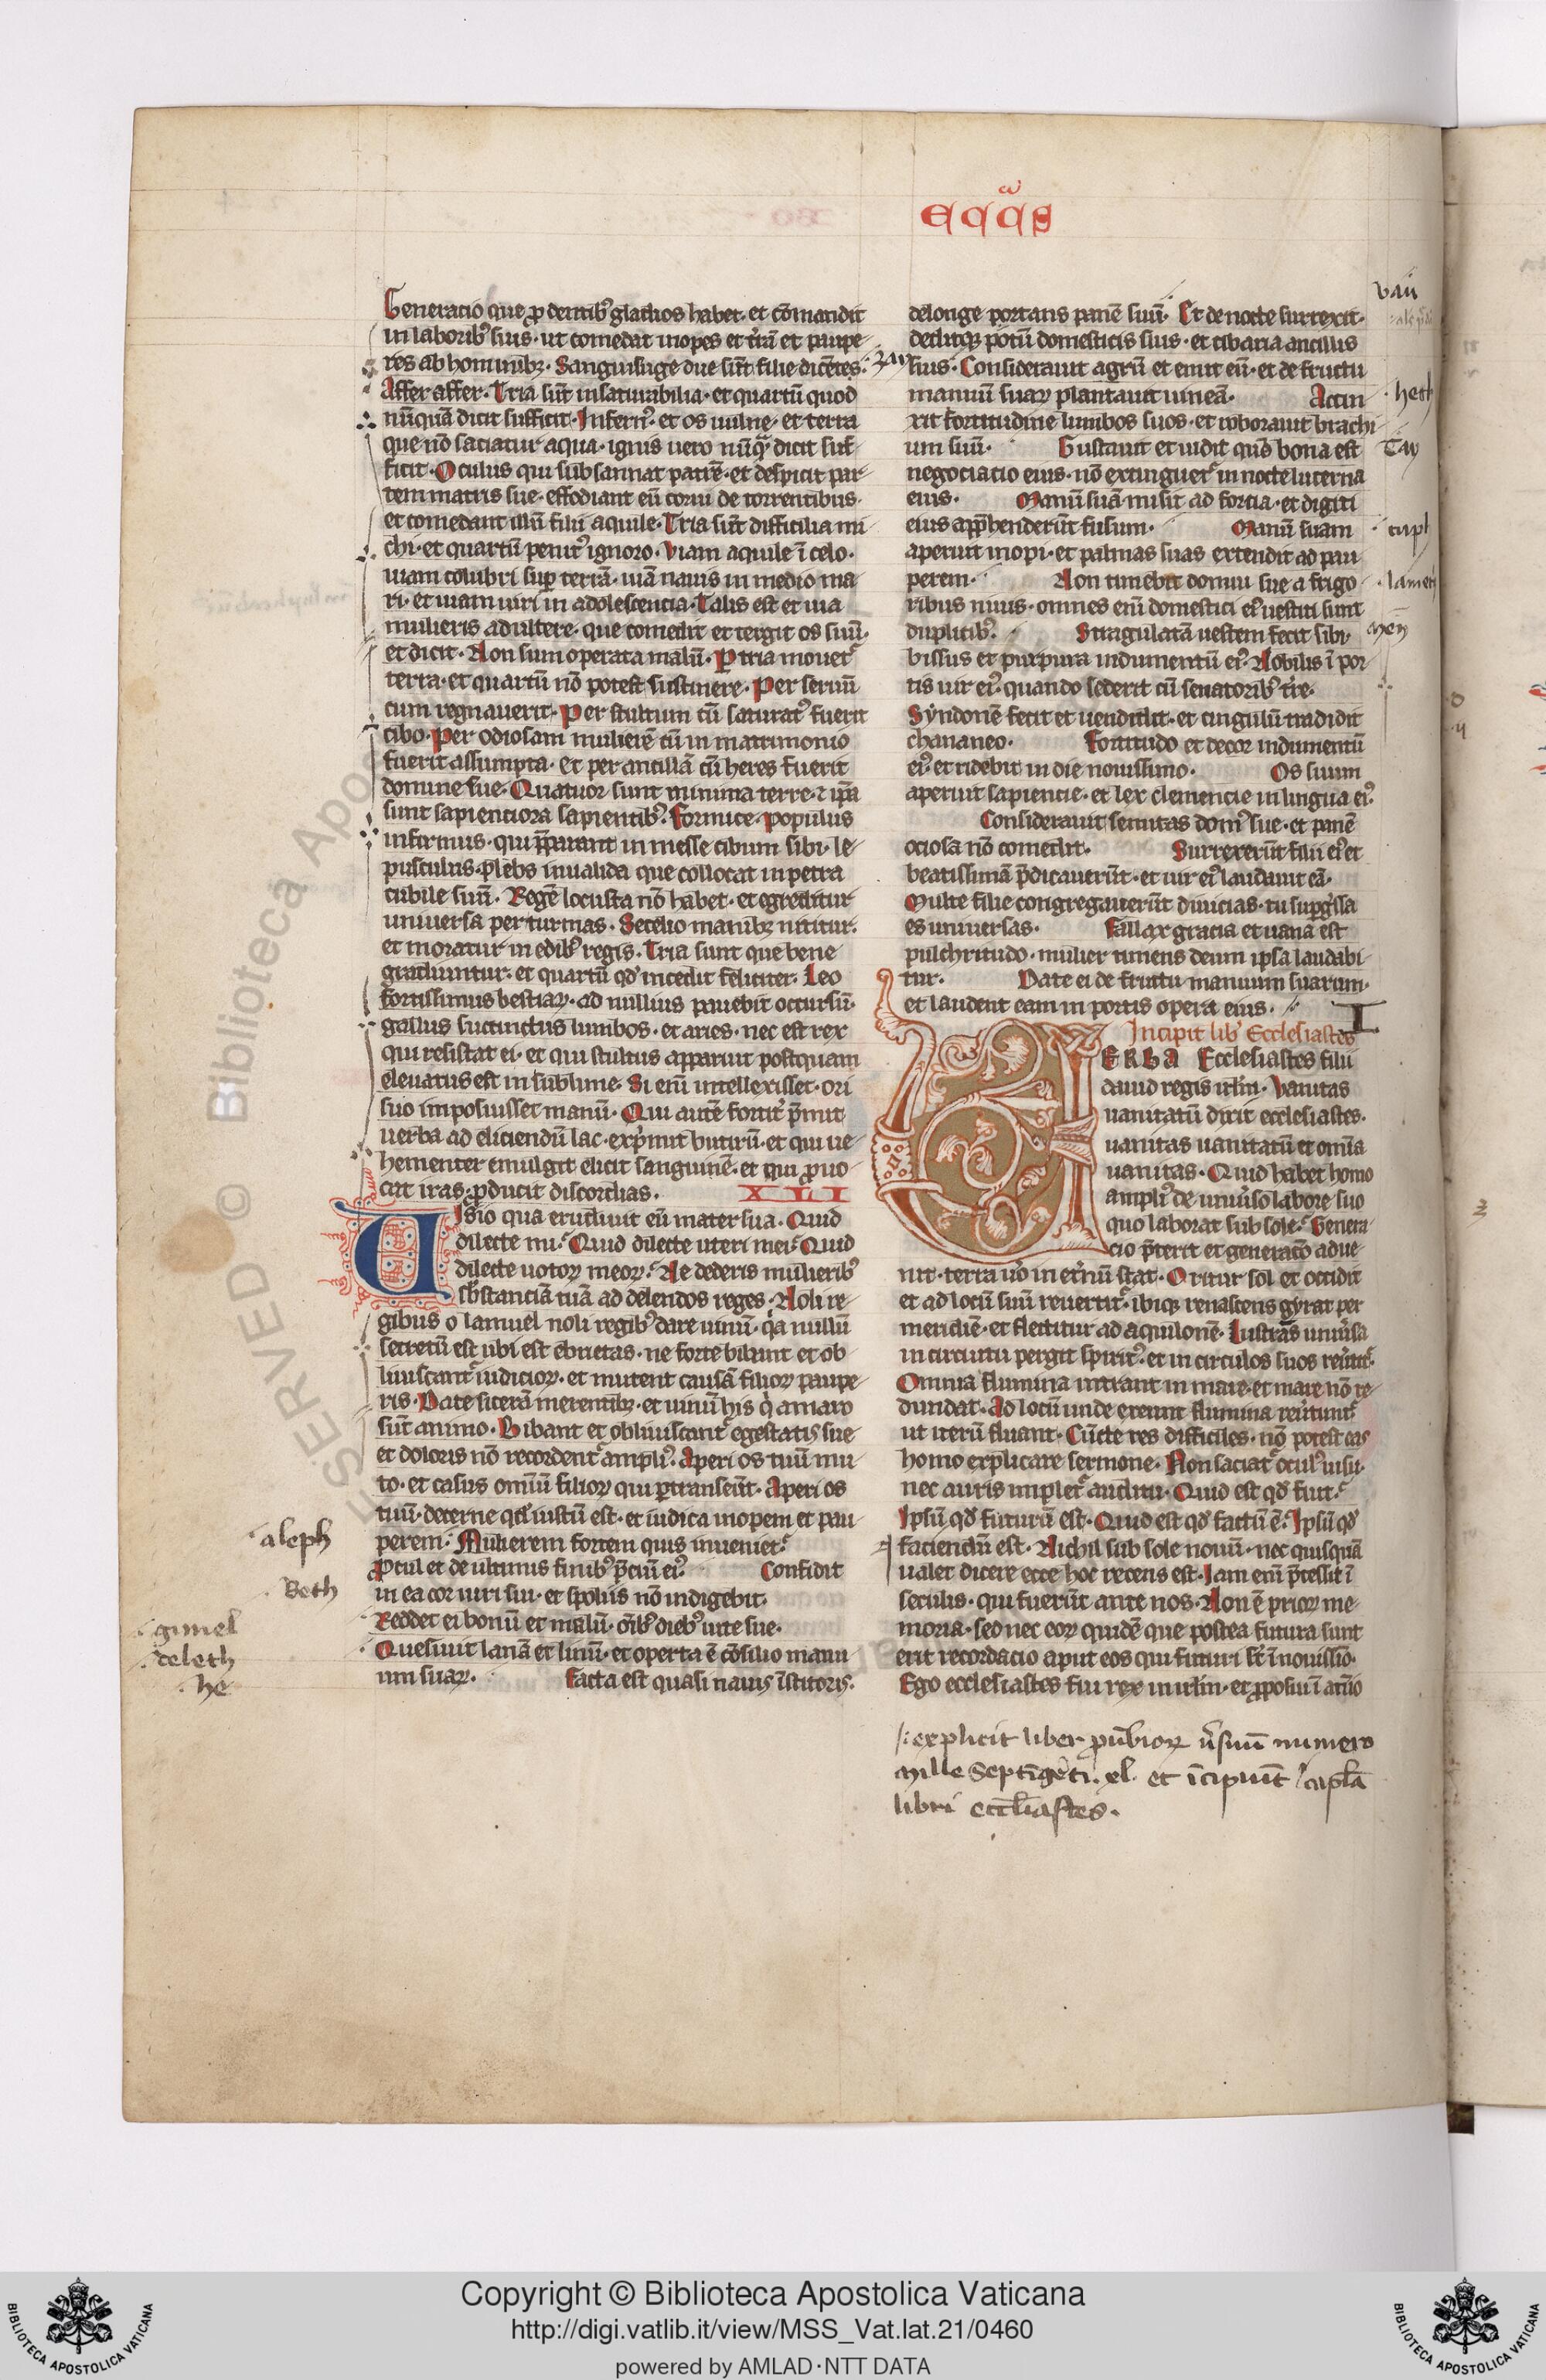 Eccłs
Generacio que ꝓ dentibꝰ gladios habet· et cōmandit
in laboribꝰ suis· ut comedat inopes et t̾rā et paupe-
res ab hominibꝫ· Sanguisuge due sūt filie dicētes·
Affer affer· Tria sūt insaturabilia· et quartū quod
nūquā dicit sufficit· Infernꝰ et os uulue· et terra
que nō saciatur aqua· ignis uero nūqͣ dicit suf-
ficit· Oculus qui subsannat patrē· et despicit par-
tem matris sue· effodiant eū corui de torrentibus·
et comedant illū filii aquile· Tria sūt difficilia mi-
chi· et quartū penitꝰ ignoro· Viam aquile ī celo·
uiam colubri suꝑ terrā· uiā nauis in medio ma-
ri· et uiam uiri in adolescencia· Talis est et uia
mulieris adultere· que comedit et tergit os suū·
et dicit· Non sum operata malū· P tria mouet᷑
terra· et quartū nō potest sustinere· Per seruū
cum regnauerit· Per stultum cū saturatꝰ fuerit
cibo· Per odiosam mulierē cū in matrimonio
fuerit assumpta· et per ancillā cū heres fuerit
domine sue· Quatuor sunt minima terre· ⁊ ip̄a
sunt sapienciora sapientibꝰ· Formice· populus
infirmus· qui p̄parant in messe cibum sibi· le-
pusculus· plebs inualida que collocat in petra
cubile suū· Regē locusta nō habet· et egreditur
uniuersa per turmas· Stelio manibꝫ nititur·
et moratur in edibꝰ regis· Tria sunt que bene
gradiuntur· et quartū qđ incedit feliciter· Leo
fortissimus bestiaꝝ· ad nullius pauebit occursū·
gallus succinctus lumbos· et aries· nec est rex
qui resistat ei· et qui stultus apparuit postquam
eleuatus est in sublime· Si enī intellexisset· ori
suo imposuisset manū· Qui autē fortit̾ p̄mit
uerba ad eliciendū lac· exp̾mit butirū· et qui ue-
hementer emulgit elicit sanguinē· et qui ꝓuo-
cat iras· ꝓducit discordias· XLI
Uisio qua erudiuit eū mater sua· Quid
dilecte mi? Quid dilecte uteri mei? Quid
dilecte uotoꝝ meoꝝ? Ne dederis mulieribꝰ
sb̄stanciā tuā ad delendos reges· Noli re-
gibus o lamuel noli regibꝰ dare uinū· qͥa nullū
secretū est ubi est ebrietas· ne forte bibant et ob-
liuiscant᷑ iudicioꝝ· et mutent causā filioꝝ paupe-
ris· Date sicerā merentibꝫ· et uinū his qͥ amaro
sūt animo· Bibant et obliuiscant᷑ egestatis sue
et doloris nō recordent᷑ ampliꝰ· Aperi os tuū mu-
to· et causis omīū filioꝝ qui ꝑtranseūt· Aperi os
tuū· decerne qđ iustū est· et iudica inopem et pau-
perem· Mulierem fortem quis inueniet?
aleph
Procul et de ultimis finibꝰ p̄ciū eiꝰ· Confidit
Beth
in ea cor uiri sui· et spoliis nō indigebit·
gimel
Reddet ei bonū et malū· oībꝰ diebꝰ uite sue·
deleth
Quesiuit lanā et linū· et operta ē cōsilio manu
he
um suaꝝ· Facta est quasi nauis īstitoris·
vau
delonge portans panē suū· Et de nocte surrexit·
deditqꝫ p̄dā domesticis suis· et cibaria ancillis
zay
suis· Considerauit agrū et emit eū· et de fructu
heth
manuū suaꝝ plantauit uineā· Accin
xit fortitudine lumbos suos· et roborauit brachi-
Tay
um suū· Gustauit et uidit qm̄ bona est
negociacio eius· nō extinguet᷑ in nocte lucerna
eius· Manū suā misit ad forcia· et digiti
caph
eius app̄henderūt fusum· Manū suam
aperuit inopi· et palmas suas extendit ad pau
lameth
perem· Non timebit domui sue a frigo-
ribus niuis· omnes enī domestici eiꝰ uestiti sunt
men
duplicibꝰ· Stragulatā uestem fecit sibi·
bissus et purpura indumentū eiꝰ· Nobilis ī por-
tis uir eiꝰ· quando sederit cū senatoribꝰ t̾re·
Syndonē fecit et uendidit· et cingulū tradidit
chananeo· Fortitudo et decor indumentū
eiꝰ· et ridebit in die nouissimo· Os suum
aperuit sapiencie· et lex clemencie in lingua eiꝰ·
Considerauit semitas domꝰ sue· et panē
ociosa nō comedit· Surrexerūt filii eiꝰ et
beatissimā p̄dicauerūt· et uir eiꝰ laudauit eā·
Multe filie congregauerūt diuicias· tu suꝑgͥssa
es uniuersas· Fallax gracia et uana est
pulchritudo· mulier timens deum ipsa laudabi-
tur· Date ei de fructu manuum suarum·
et laudent eam in portis opera eius·
Incipit lib̾ Ecclesiastes I
VERBA Ecclesiastes filii
dauid regis irl̄m· Vanitas
uanitatū dixit ecclesiastes·
uanitas uanitatū et omīa
uanitas· Quid habet homo
ampliꝰ de uniu̾so labore suo
quo laborat sub sole? Genera-
cio p̄terit et generacō adue-
nit· terra u̾o in et̾nū stat· Oritur sol et occidit
et ad locū suū reuertit᷑· ibiqꝫ renascens gyrat per
meridiē· et flectitur ad aquilonē· Lustrās uniu̾sa
in circuitu pergit spiritꝰ· et in circulos suos reu̾tit᷑·
Omnia flumina intrant in mare· et mare nō re-
dundat· Ad locū unde exeunt flumina reu̾tunt᷑
ut iterū fluant· Cūcte res difficiles· nō potest eas
homo explicare sermone· Non saciat᷑ oculꝰ uisu·
nec auris implet᷑ auditu· Quid est qđ fuit?
Ipsū qđ futurū est· Quid est qđ factū ē? Ipsū qđ
faciendū est· Nichil sub sole nouū· nec quisquā
ualet dicere ecce hoc recens est· Iam enī p̄cessit ī
seculis· qui fuerūt ante nos· Non ē prioꝝ me-
moria· sed nec eoꝝ quidē que postea futura sunt
erit recordacio aput eos qui futuri st̄ ī nouissīo·
Ego ecclesiastes fui rex in irl̄m· et ꝓposui ī aīo
explicit liber ꝓu̾bioꝝ u̾suū numero
Mille Septīgēti· xl· et īcipiūt capl̄a
libri eccl̄iastes·
RESERVED © Biblioteca Apos
Copyright © Biblioteca Apostolica Vaticana
http://digi.vatlib.it/view/MSS_Vat.lat.21/0460
powered by AMLAD·NTT DATA
BIBLIOTECA APOSTOLICA VATICANA
BIBLIOTECA APOSTOLICA VATICANA